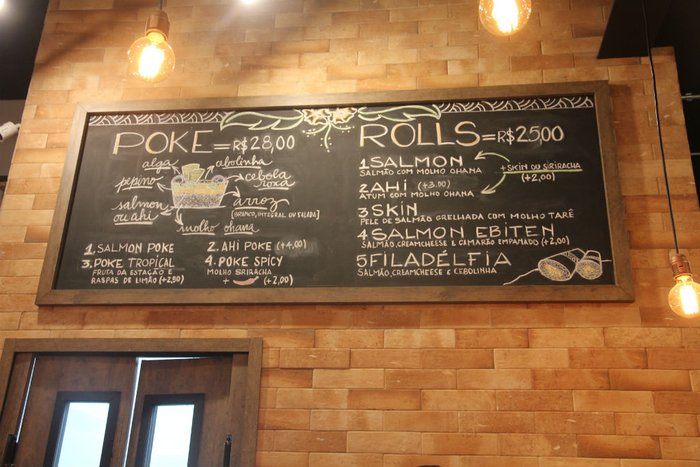 POKE = R$28,00
alga
cebolinha
pepino
cebola roxa
salmon ou ahi
arroz
(BRANCO, INTEGRAL OU SALADA)
molho ohana
1. SALMON POKE
2. AHI POKE (+4,00)
3. POKE TROPICAL
FRUTA DA ESTAÇÃO E
RASPAS DE LIMÃO (+2,50)
4. POKE SPICY
MOLHO SRIRACHA
+ (+2,00)
ROLLS = R$25,00
1 SALMON
SALMÃO COM MOLHO OHANA
+ SKIN OU SRIRACHA
(+2,00)
2 AHI (+3,00)
ATUM COM MOLHO OHANA
3 SKIN
PELE DE SALMÃO GRELHADA COM MOLHO TARÊ
4 SALMON EBITEN
SALMÃO, CREAMCHEESE & CAMARÃO EMPANADO (+2,00)
5 FILADÉLFIA
SALMÃO, CREAMCHEESE & CEBOLINHA